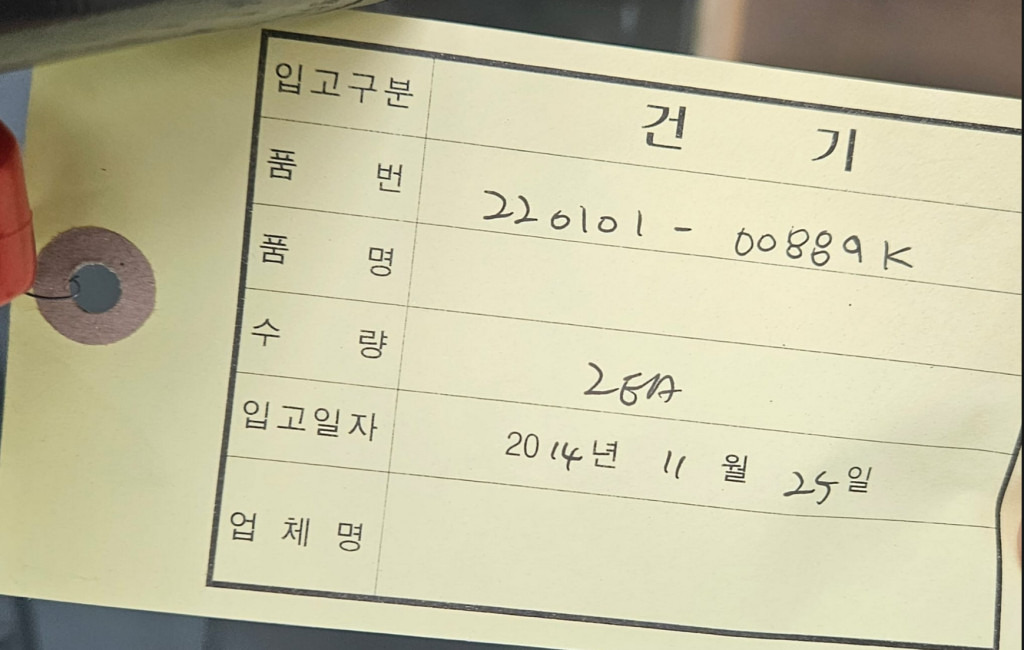 입고구분 건 기
품 번 220101 - 00889K
품 명
수 량 2EA
입고일자 2014년 11월 25일
업 체 명